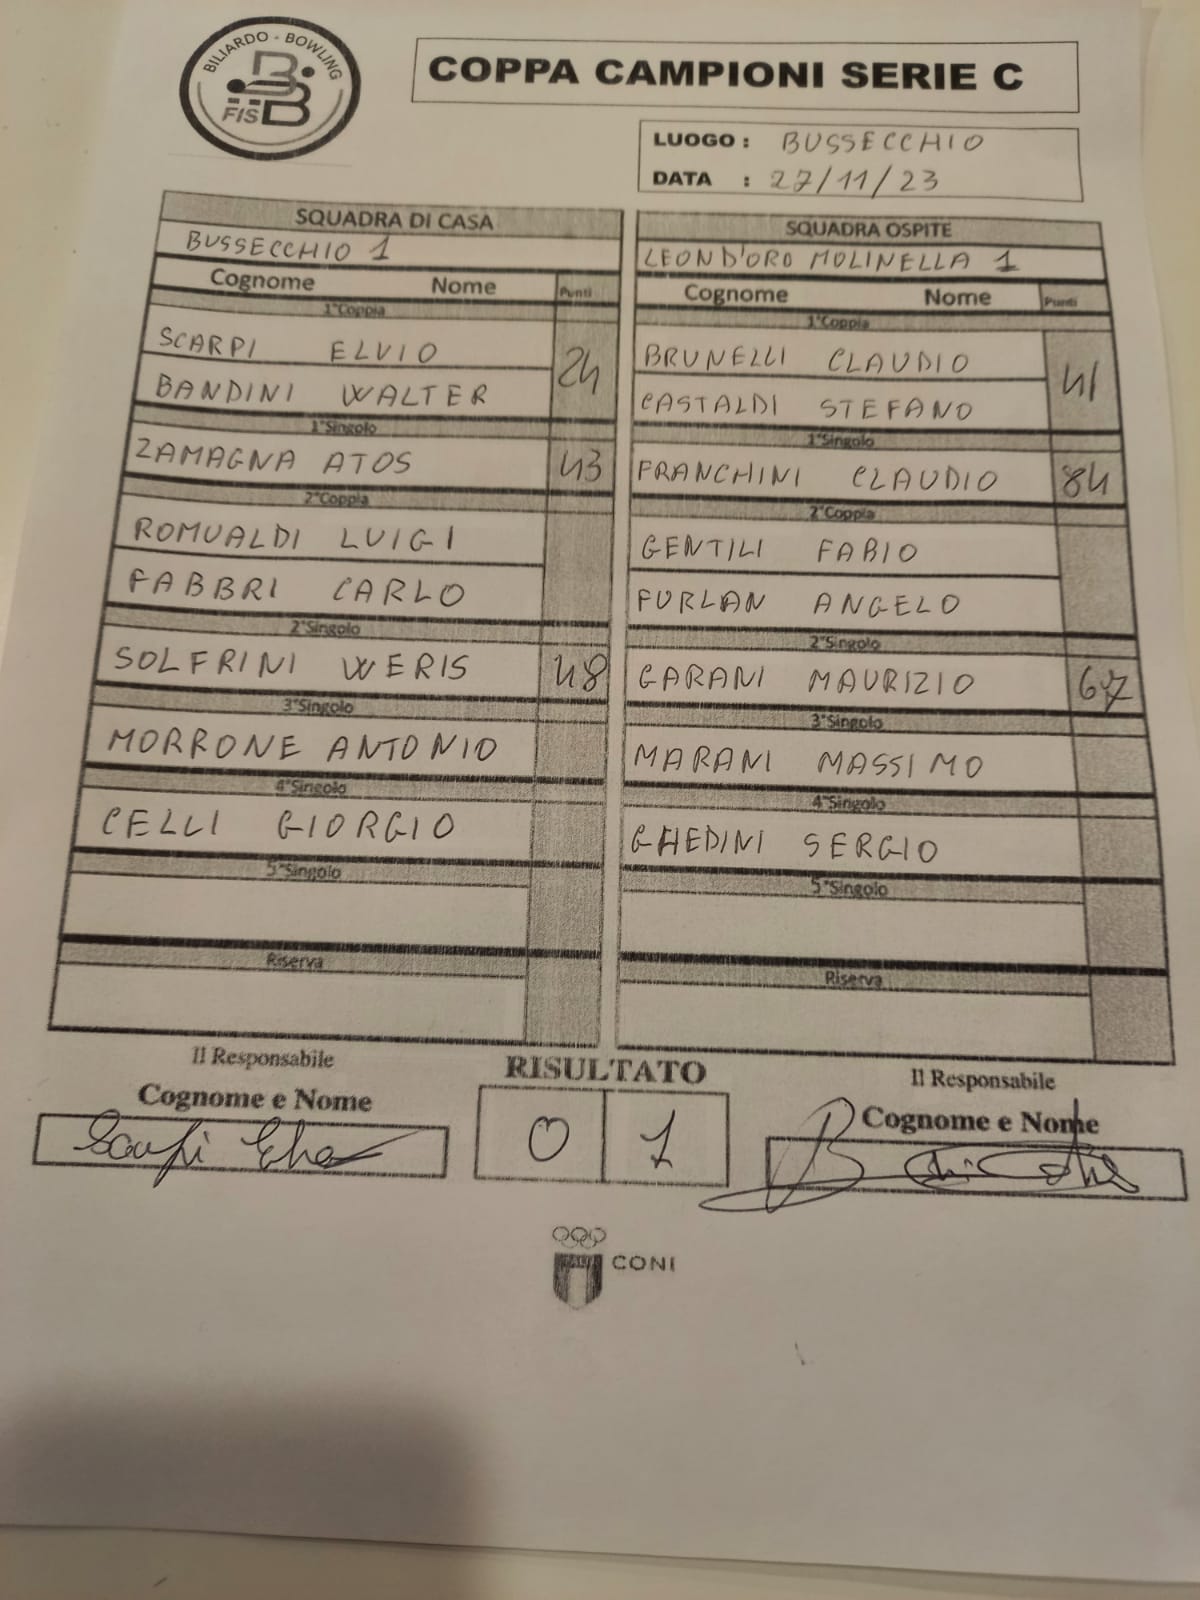 BILIARDO - BOWLING
FISBB
COPPA CAMPIONI SERIE C
LUOGO : BUSSECCHIO
DATA : 27/11/23
SQUADRA DI CASA
BUSSECCHIO 1
Cognome Nome Punti
1°Coppia
SCARPI ELVIO 24
BANDINI WALTER
1°Singolo
ZAMAGNA ATOS 43
2°Coppia
ROMUALDI LUIGI
FABBRI CARLO
2°Singolo
SOLFRINI WERIS 48
3°Singolo
MORRONE ANTONIO
4°Singolo
CELLI GIORGIO
5°Singolo
Riserva
SQUADRA OSPITE
LEON D'ORO MOLINELLA 1
Cognome Nome Punti
1°Coppia
BRUNELLI CLAUDIO 41
CASTALDI STEFANO
1°Singolo
FRANCHINI CLAUDIO 84
2°Coppia
GENTILI FABIO
FURLAN ANGELO
2°Singolo
GARANI MAURIZIO 67
3°Singolo
MARANI MASSIMO
4°Singolo
GHEDINI SERGIO
5°Singolo
Riserva
Il Responsabile
Cognome e Nome
Scarpi
RISULTATO
0 1
Il Responsabile
Cognome e Nome
CONI